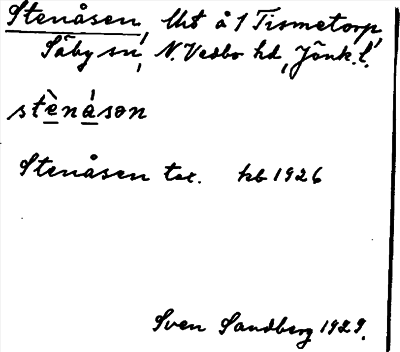 Stenåsen, lht å 1 Tismetorp,
Säby sn, N. Vedbo hd, Jönk. l.
stèna̍sən
Stenåsen tor. hb 1926
Sven Sandberg 1929.